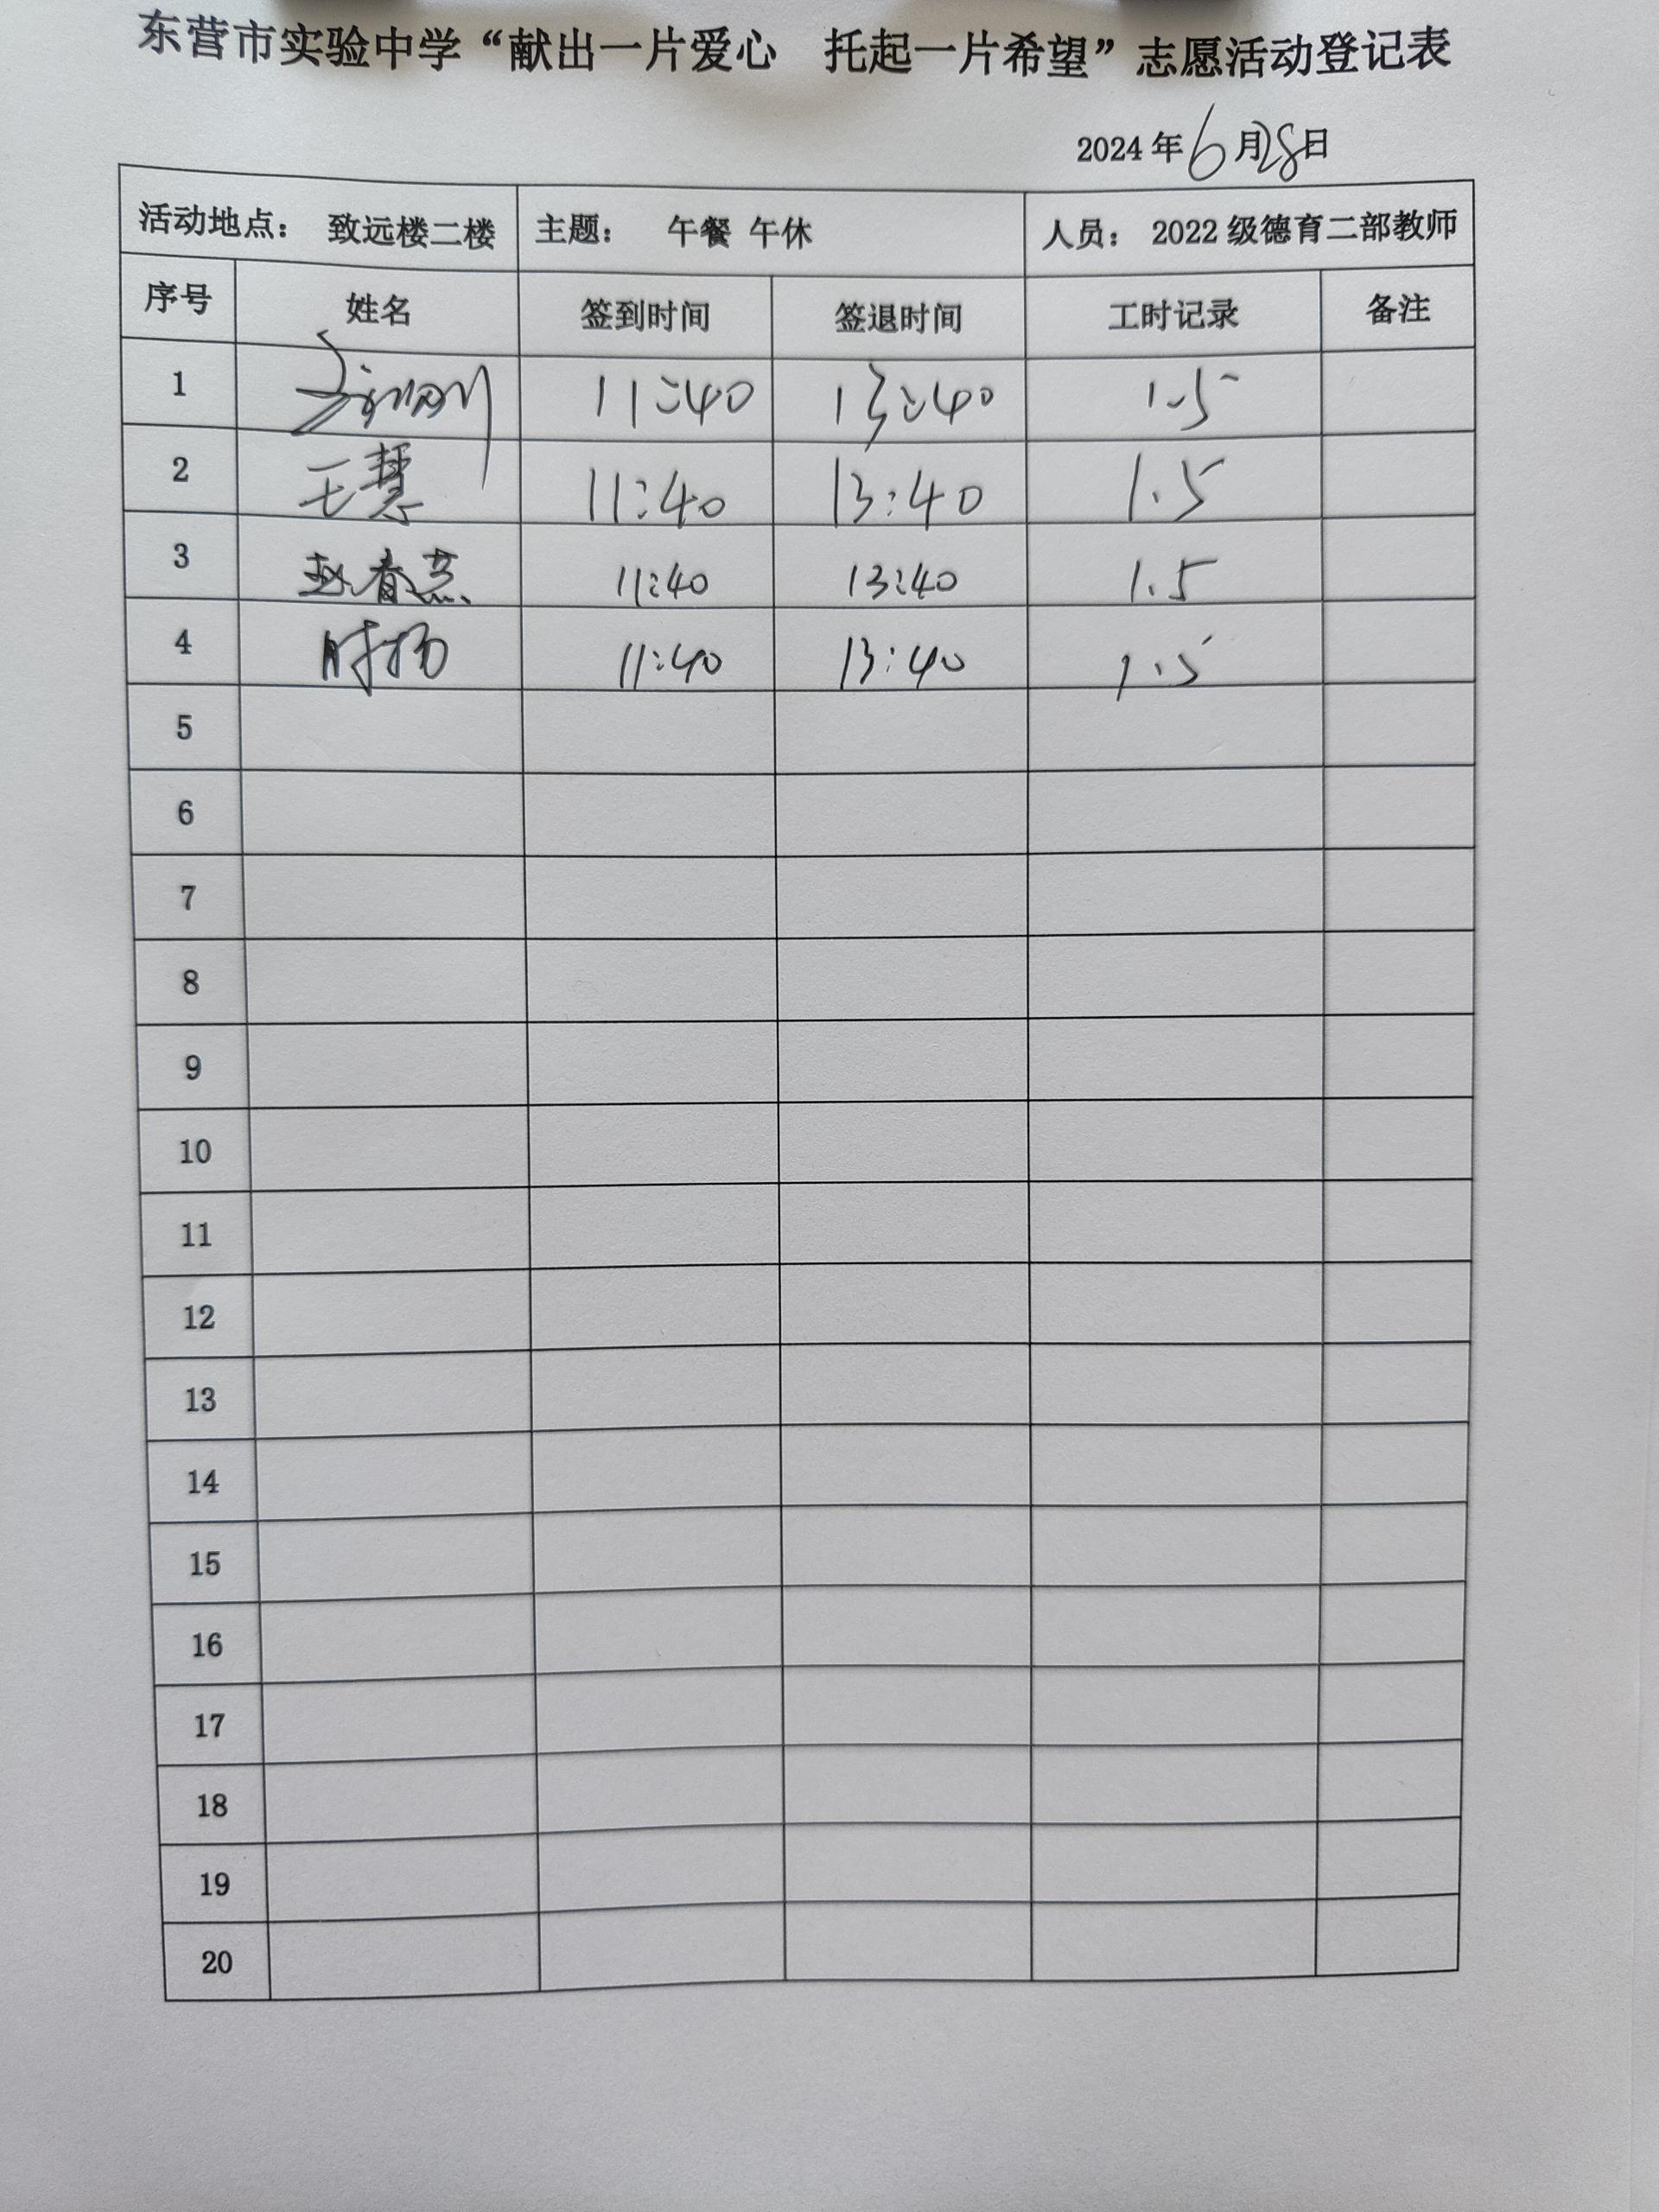 东营市实验中学“献出一片爱心 托起一片希望”志愿活动登记表
2024 年 6 月 28 日
活动地点： 致远楼二楼 主题： 午餐 午休 人员： 2022 级德育二部教师
序号 姓名 签到时间 签退时间 工时记录 备注
1 11:40 13:40 1.5
2 王慧 11:40 13:40 1.5
3 赵春燕 11:40 13:40 1.5
4 时扬 11:40 13:40 1.5
5
6
7
8
9
10
11
12
13
14
15
16
17
18
19
20